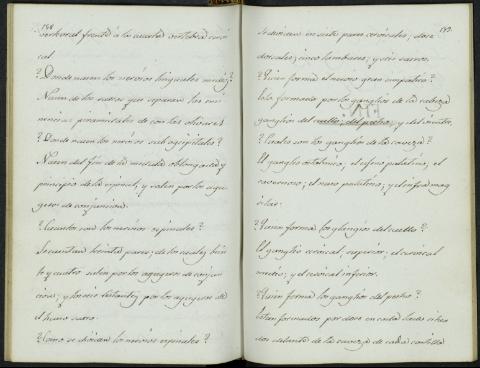 188
vertebral frente á la cuarta vertebra cervi-
cal.
? Donde nacen los nervios linguales medios?
Nacen de los surcos que separan las emi-
nencias piramidales de con las olivares.
? Donde nacen los nervios sub occipitales?
Nacen del fin de la medula oblongada y
principio de la espinal, y salen por los agu-
geros de conjuncion.
? Cuantos son los nervios espinales?
Se cuentan treinta pares; de los cuales vein-
te y cuatro salen por los agugeros de conjun-
cion; y los seis restantes por los agugeros de
el hueso sacro.
? Como se dividen los nervios espinales?
189
Se dividen en siete pares cervicales; doce
dorsales; cinco lumbares; y seis sacros.
? Quien forma el nervio gran simpatico?
Esta formado por los ganglios de la cabeza
ganglios del cuello; del pecho; y del vientre.
? Cuales son los ganglios de la cabeza?
El ganglio oftalmico; el esfeno palatino; el
cavernoso; el naso palatino; y el submaxi-
lar.
? Quien forma los ganglios del cuello?
El ganglio cervical superior; el cervical
medio; y el cervical inferior.
? Quien forma los ganglios del pecho?
Estan formados por doce en cada lado situa-
dos delante de la cabeza de cada costilla